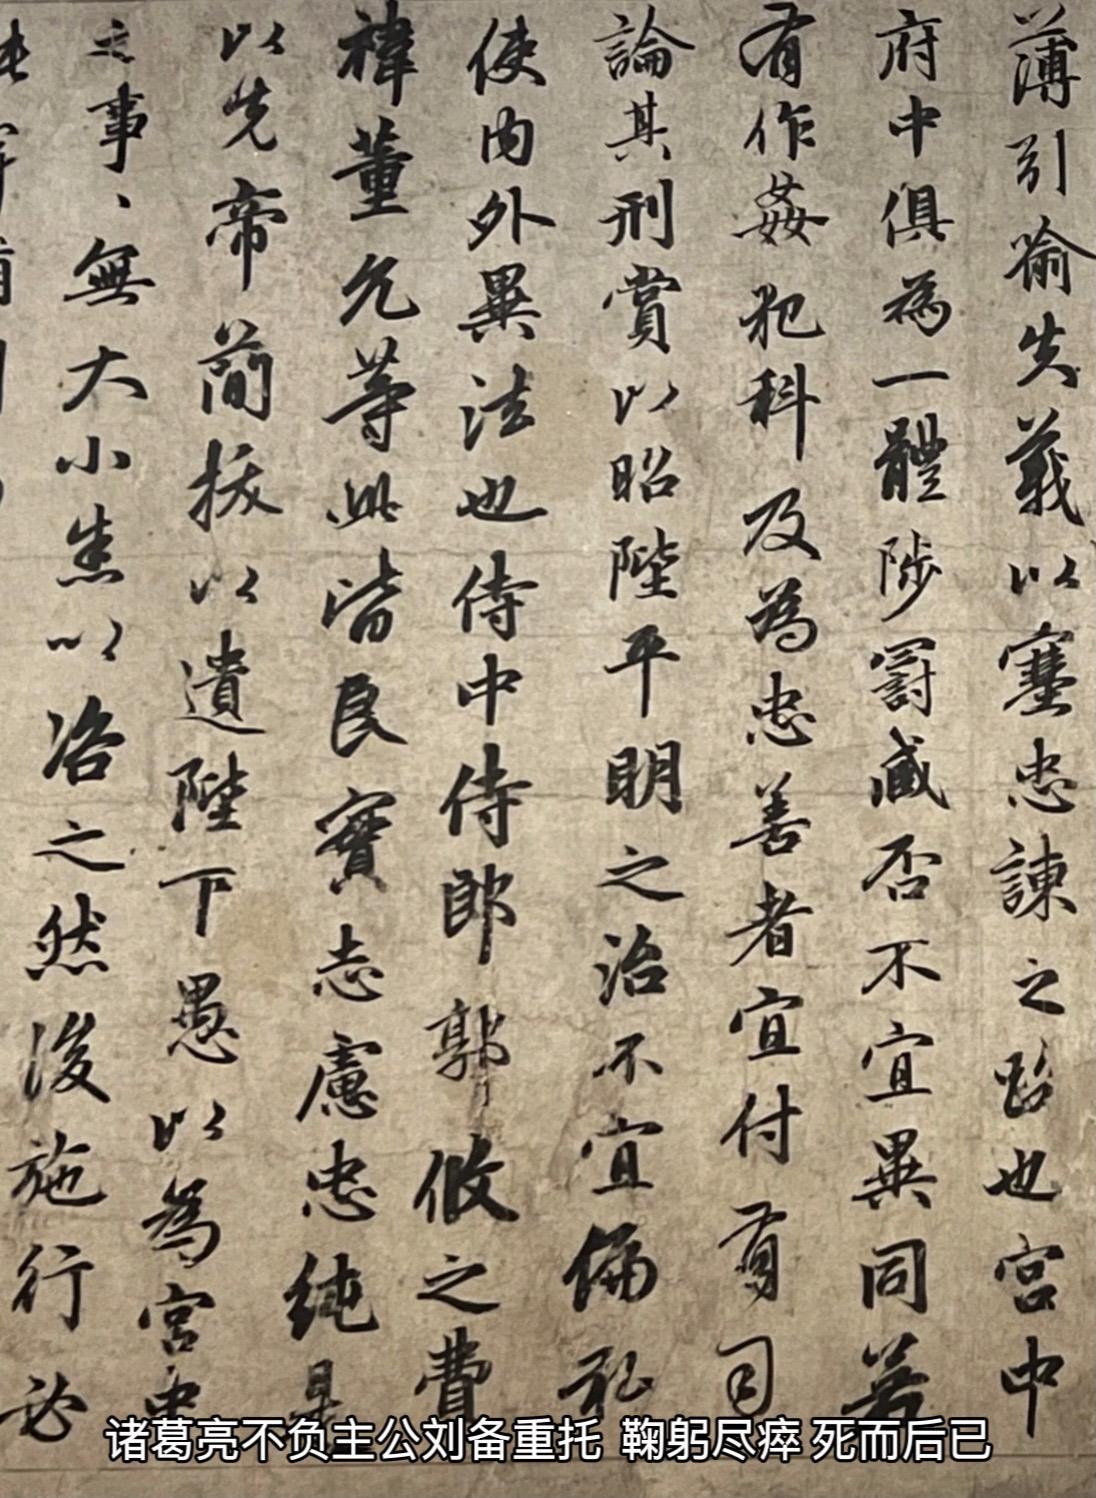 薄引喻失義以塞忠諫之路也宮中
府中俱為一體陟罰臧否不宜異同若
有作姦犯科及為忠善者宜付有司
論其刑賞以昭陛下平明之治不宜偏私
使內外異法也侍中侍郎郭攸之費
禕董允等此皆良實志慮忠純是
以先帝簡拔以遺陛下愚以為宮中
之事、無大小悉以咨之然後施行必
诸葛亮不负主公刘备重托 鞠躬尽瘁 死而后已